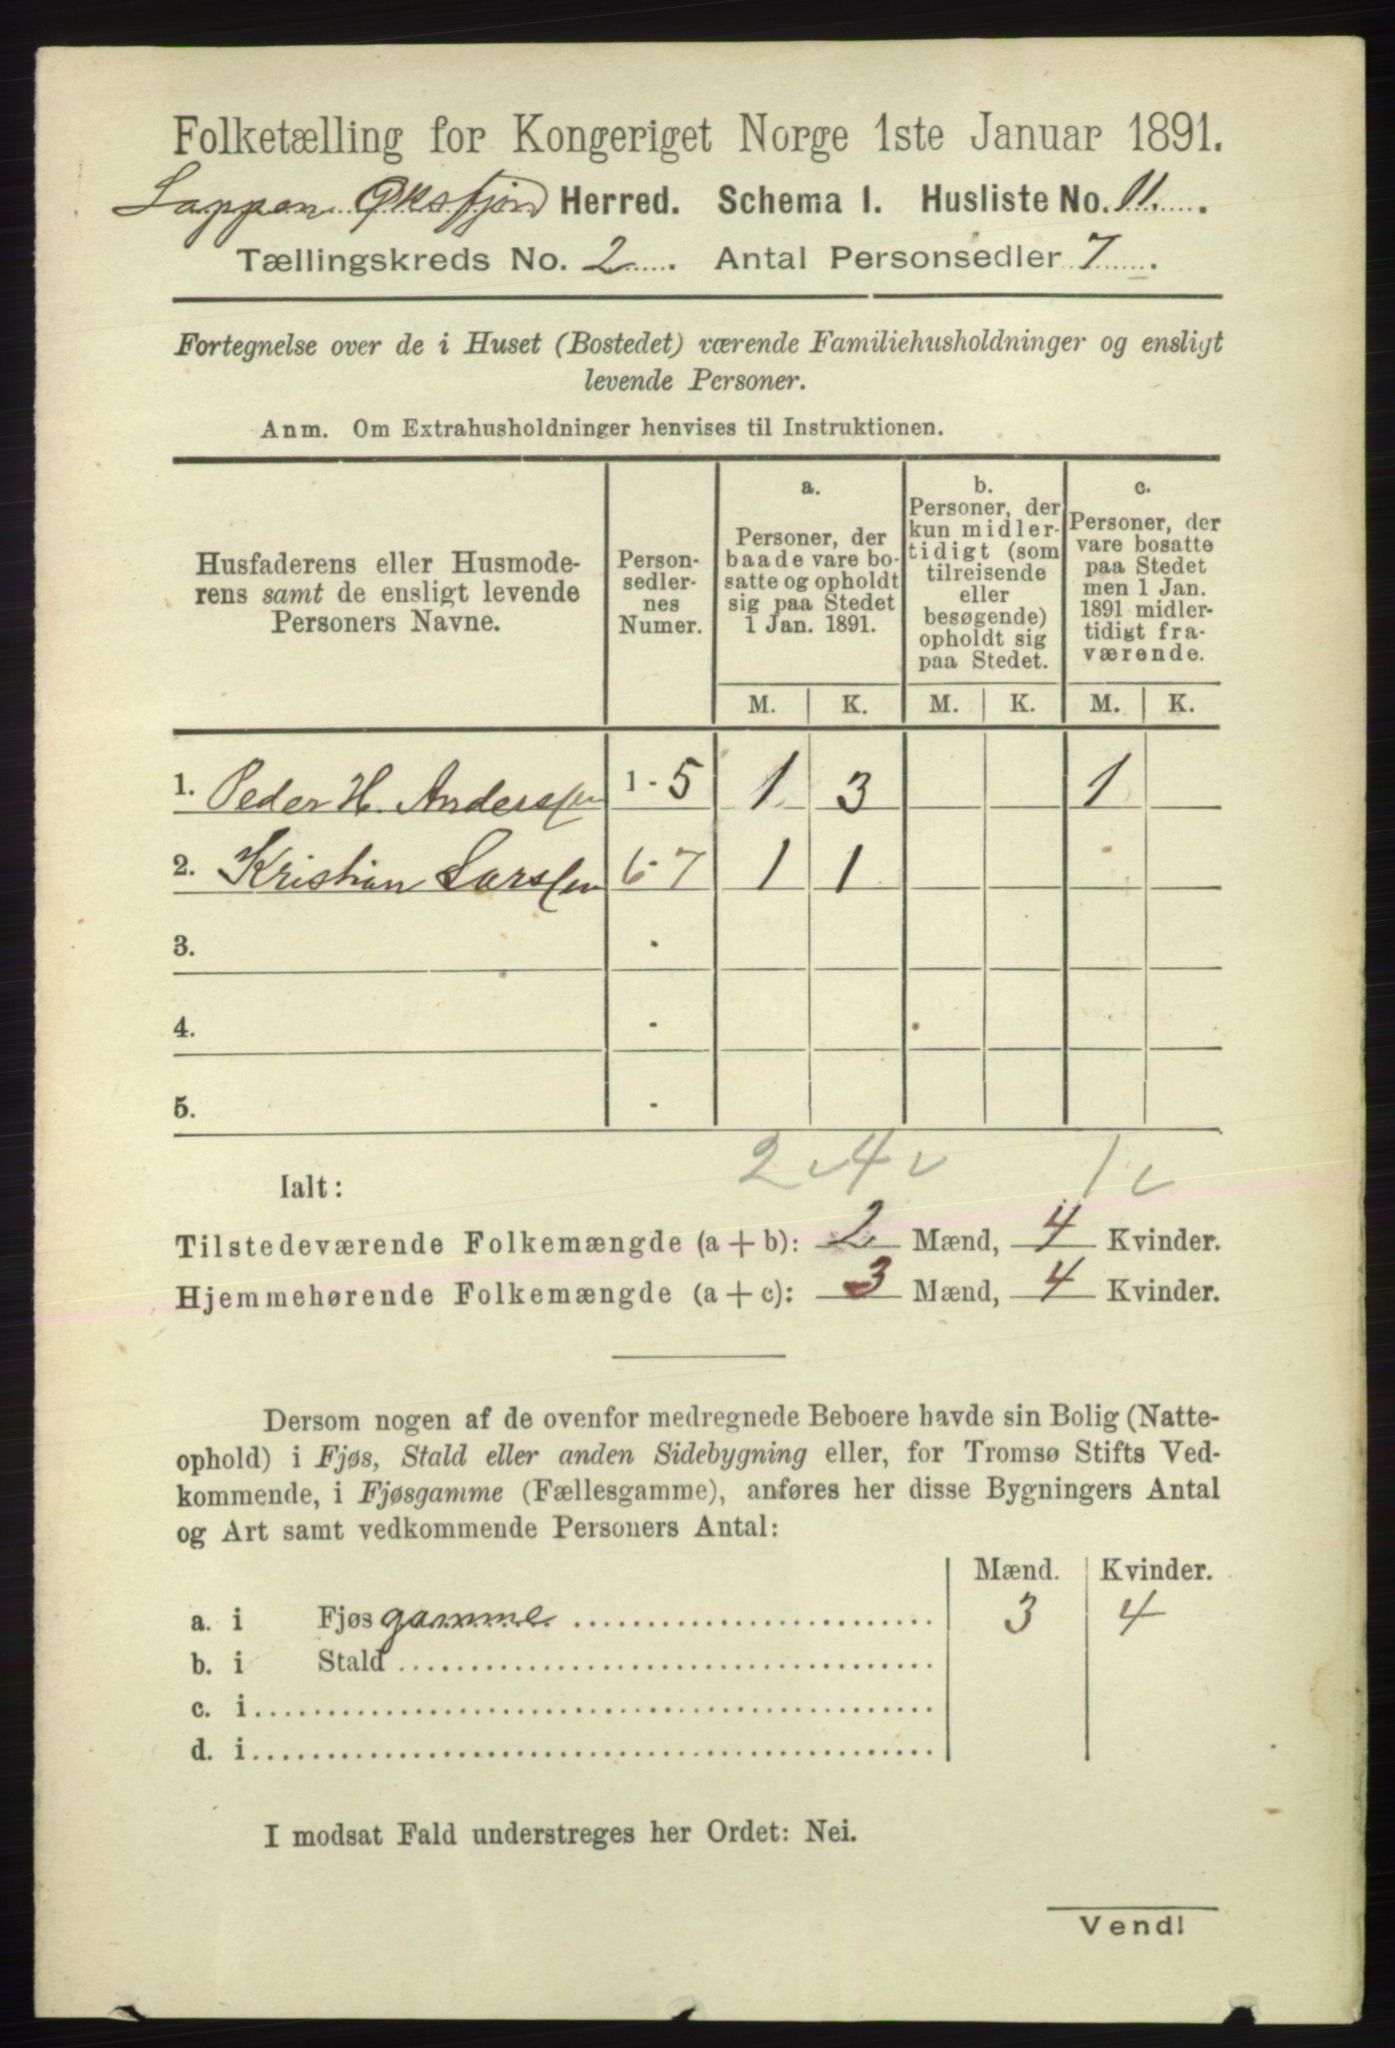 Folketælling for Kongeriget Norge 1ste Januar 1891.
Loppen Øksfjord Herred. Schema 1. Husliste No. 11.
Tællingskreds No. 2. Antal Personsedler 7.
Fortegnelse over de i Huset (Bostedet) værende Familiehusholdninger og ensligt
levende Personer.
Anm. Om Extrahusholdninger henvises til Instruktionen.
Husfaderens eller Husmode-
rens samt de ensligt levende
Personers Navne.
Person-
sedler-
nes
Numer.
a.
Personer, der
baade vare bo-
satte og opholdt
sig paa Stedet
1 Jan. 1891.
b.
Personer, der
kun midler-
tidigt (som
tilreisende
eller
besøgende)
opholdt sig
paa Stedet.
c.
Personer, der
vare bosatte
paa Stedet
men 1 Jan.
1891 midler-
tidigt fra-
værende.
M. K. M. K. M. K.
1. Peder H. Anderssen 1-5 1 3 1
2. Kristian Larssen 6-7 1 1
3. -
4. -
5. -
2 4 1
Ialt:
Tilstedeværende Folkemængde (a + b): 2 Mænd, 4 Kvinder.
Hjemmehørende Folkemængde (a + c): 3 Mænd, 4 Kvinder.
Dersom nogen af de ovenfor medregnede Beboere havde sin Bolig (Natte-
ophold) i Fjøs, Stald eller anden Sidebygning eller, for Tromsø Stifts Ved-
kommende, i Fjøsgamme (Fællesgamme), anføres her disse Bygningers Antal
og Art samt vedkommende Personers Antal:
Mænd. Kvinder.
a. i Fjøsgamme 3 4
b. i Stald
c. i
d. i
I modsat Fald understreges her Ordet: Nei.
Vend!